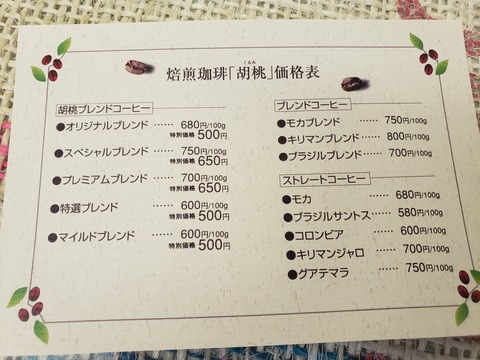 くるみ
焙煎珈琲「胡桃」価格表
胡桃ブレンドコーヒー
●オリジナルブレンド …… 680円/100g
特別価格 500円
●スペシャルブレンド …… 750円/100g
特別価格 650円
●プレミアムブレンド …… 700円/100g
特別価格 650円
●特選ブレンド …… 600円/100g
特別価格 500円
●マイルドブレンド …… 600円/100g
特別価格 500円
ブレンドコーヒー
●モカブレンド …… 750円/100g
●キリマンブレンド …… 800円/100g
●ブラジルブレンド …… 700円/100g
ストレートコーヒー
●モカ …… 680円/100g
●ブラジルサントス …… 580円/100g
●コロンビア …… 600円/100g
●キリマンジャロ …… 700円/100g
●グアテマラ …… 750円/100g